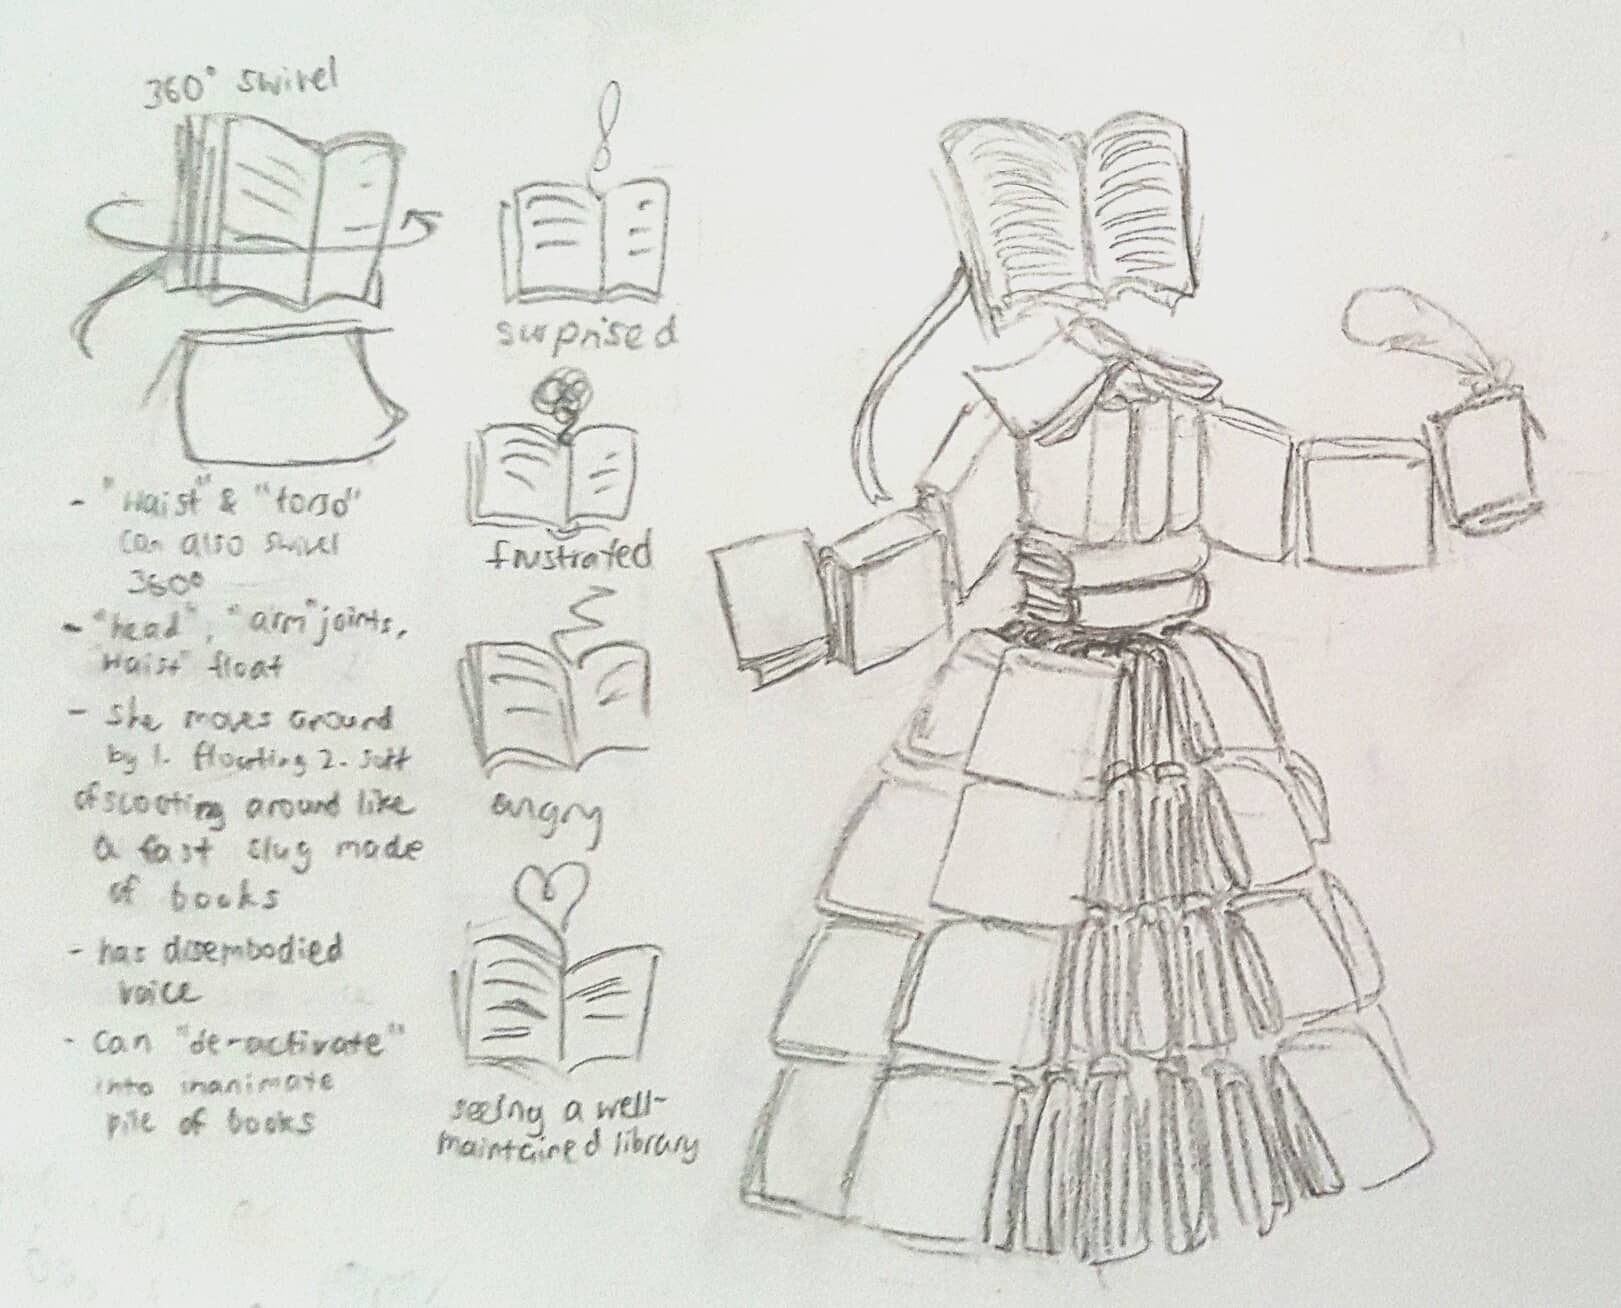 360° swivel
- "Waist" & "torso"
can also swivel
360°
- "head", "arm" joints,
"waist" float
- She moves around
by 1. floating 2. sort
of scooting around like
a fast slug made
of books
- has disembodied
voice
- Can "de-activate"
into inanimate
pile of books
surprised
frustrated
angry
seeing a well-
maintained library